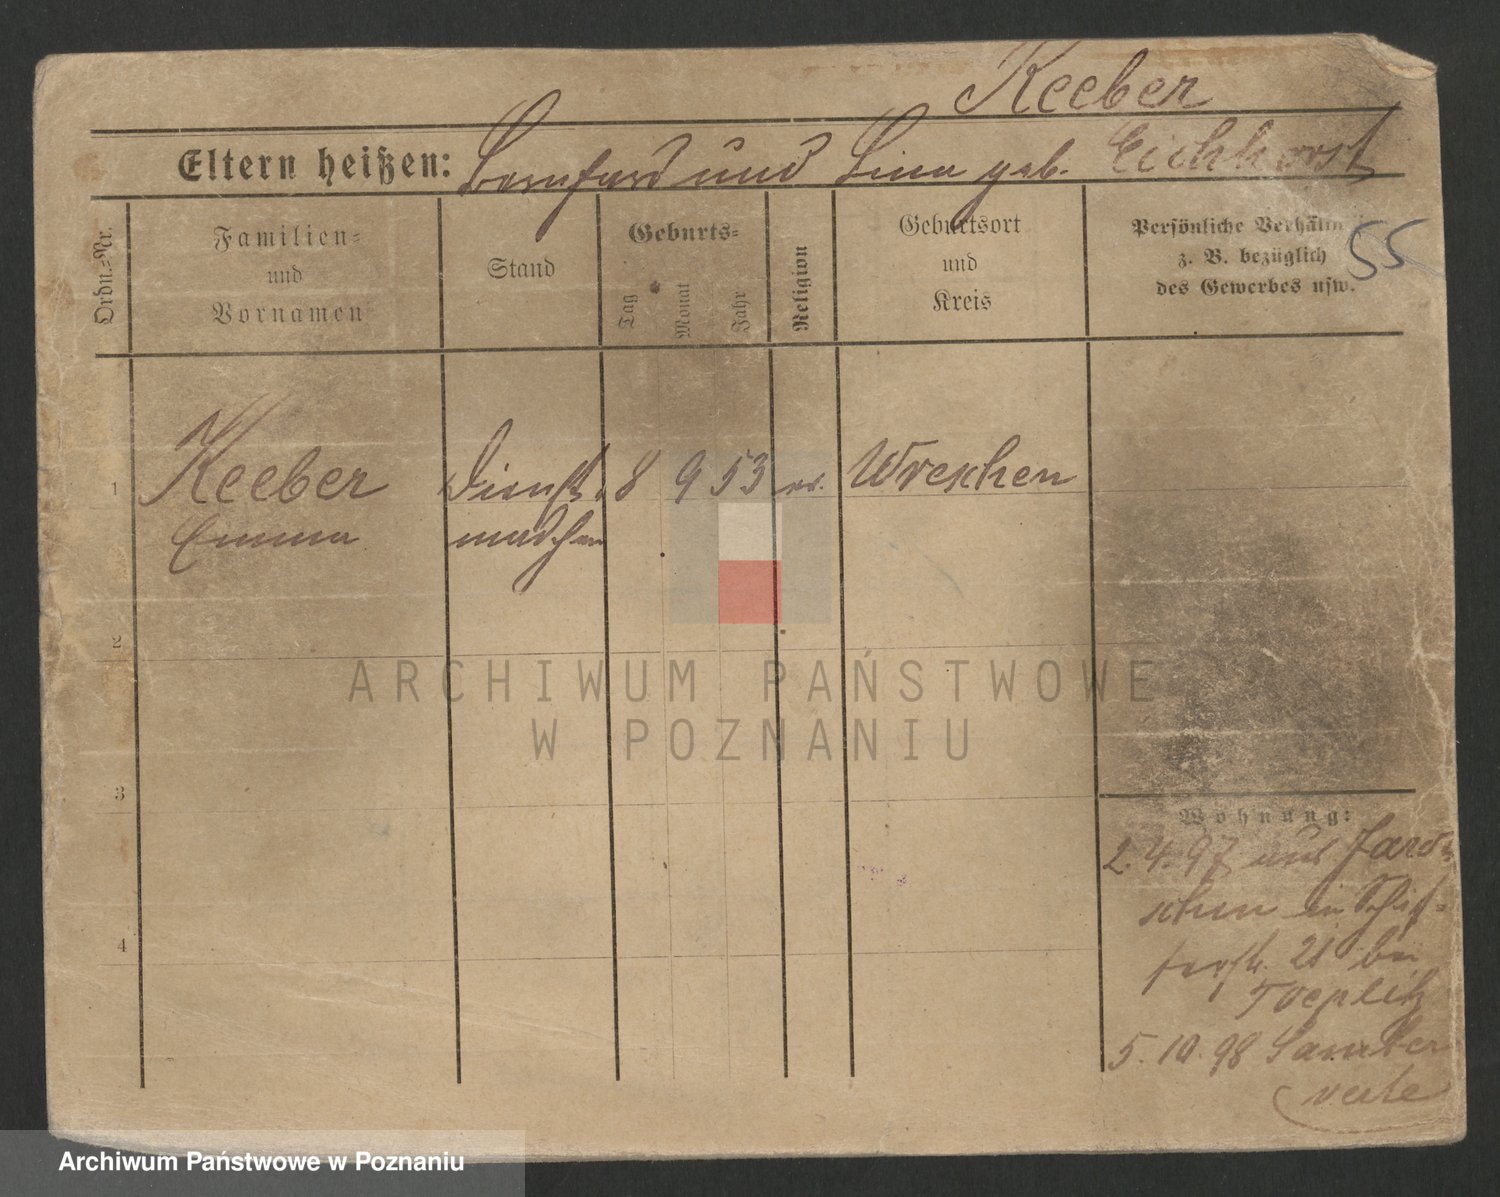 Keeber
Eltern heißen: Bernhard und Lina geb. Eichhorst
Ordn.-Nr.
Familien-
und
Vornamen
Stand
Geburts-
Tag
Monat
Jahr
Religion
Geburtsort
und
Kreis
Persönliche Verhältn
z. B. bezüglich
des Gewerbes usw.
55
1
Keeber
Emma
Dienst
mädchen
8 9 53
ev.
Wreschen
2
3
4
Wohnung:
2.4.97 aus Jarot
schin in
21 bei
Toeplitz
5.10.98
ARCHIWUM PAŃSTWOWE
W POZNANIU
Archiwum Państwowe w Poznaniu